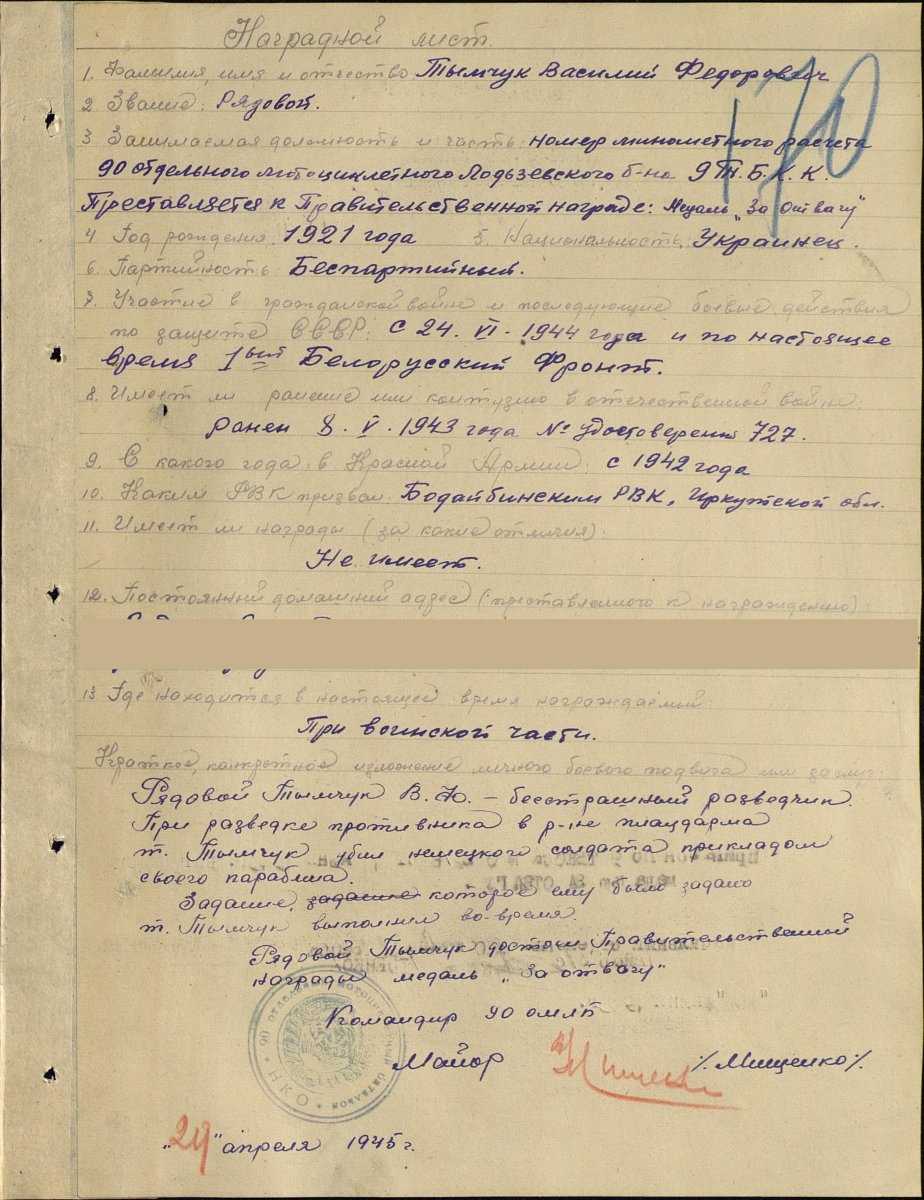 Наградной лист.
170
1. Фамилия, имя и отчество Тымчук Василий Федорович
2 Звание: Рядовой.
3. Занимаемая должность и часть: номер минометного расчета
90 отдельного мотоциклетного Лодьзевского б-на 9 Т.Б.К.К.
Преставляется к Правительственной награде: Медаль „За отвагу"
4 Год рождения: 1921 года 5. Национальность: Украинец.
6. Партийность: Беспартийный.
7. Участие в гражданской войне и последующие боевые действия
по защите СССР: с 24. VI. 1944 года и по настоящее
время 1ый Белорусский Фронт.
8. Имеет ли ранение или контузию в отечественной войне:
Ранен 8. V. 1943 года № удостоверения 727.
9. С какого года в Красной Армии: с 1942 года
10. Каким РВК призван: Бодайбинским РВК, Иркутской обл.
11. Имеет ли награды (за какие отличия):
Не имеет.
12. Постоянный домашний адрес (преставленного к награждению):
13 Где находится в настоящей время награждаемый:
При воинской части.
Краткое, конкретное изложение личного боевого подвига или заслуг:
Рядовой Тымчук В.Ф. – бесстрашный разведчик.
При разведке противника в р-не плацдарма
т. Тымчук убил немецкого солдата прикладом
своего карабина.
Задание, задание которое ему было задано
т. Тымчук выполнил во-время.
Рядовой Тымчук достоин Правительственной
награды медаль „За отвагу"
Командир 90 омлб
Майор /Мищенко/.
90 ОТДЕЛЬНЫЙ МОТОЦИКЛЕТНЫЙ БАТАЛЬОН * НКО *
„29" апреля 1945 г.